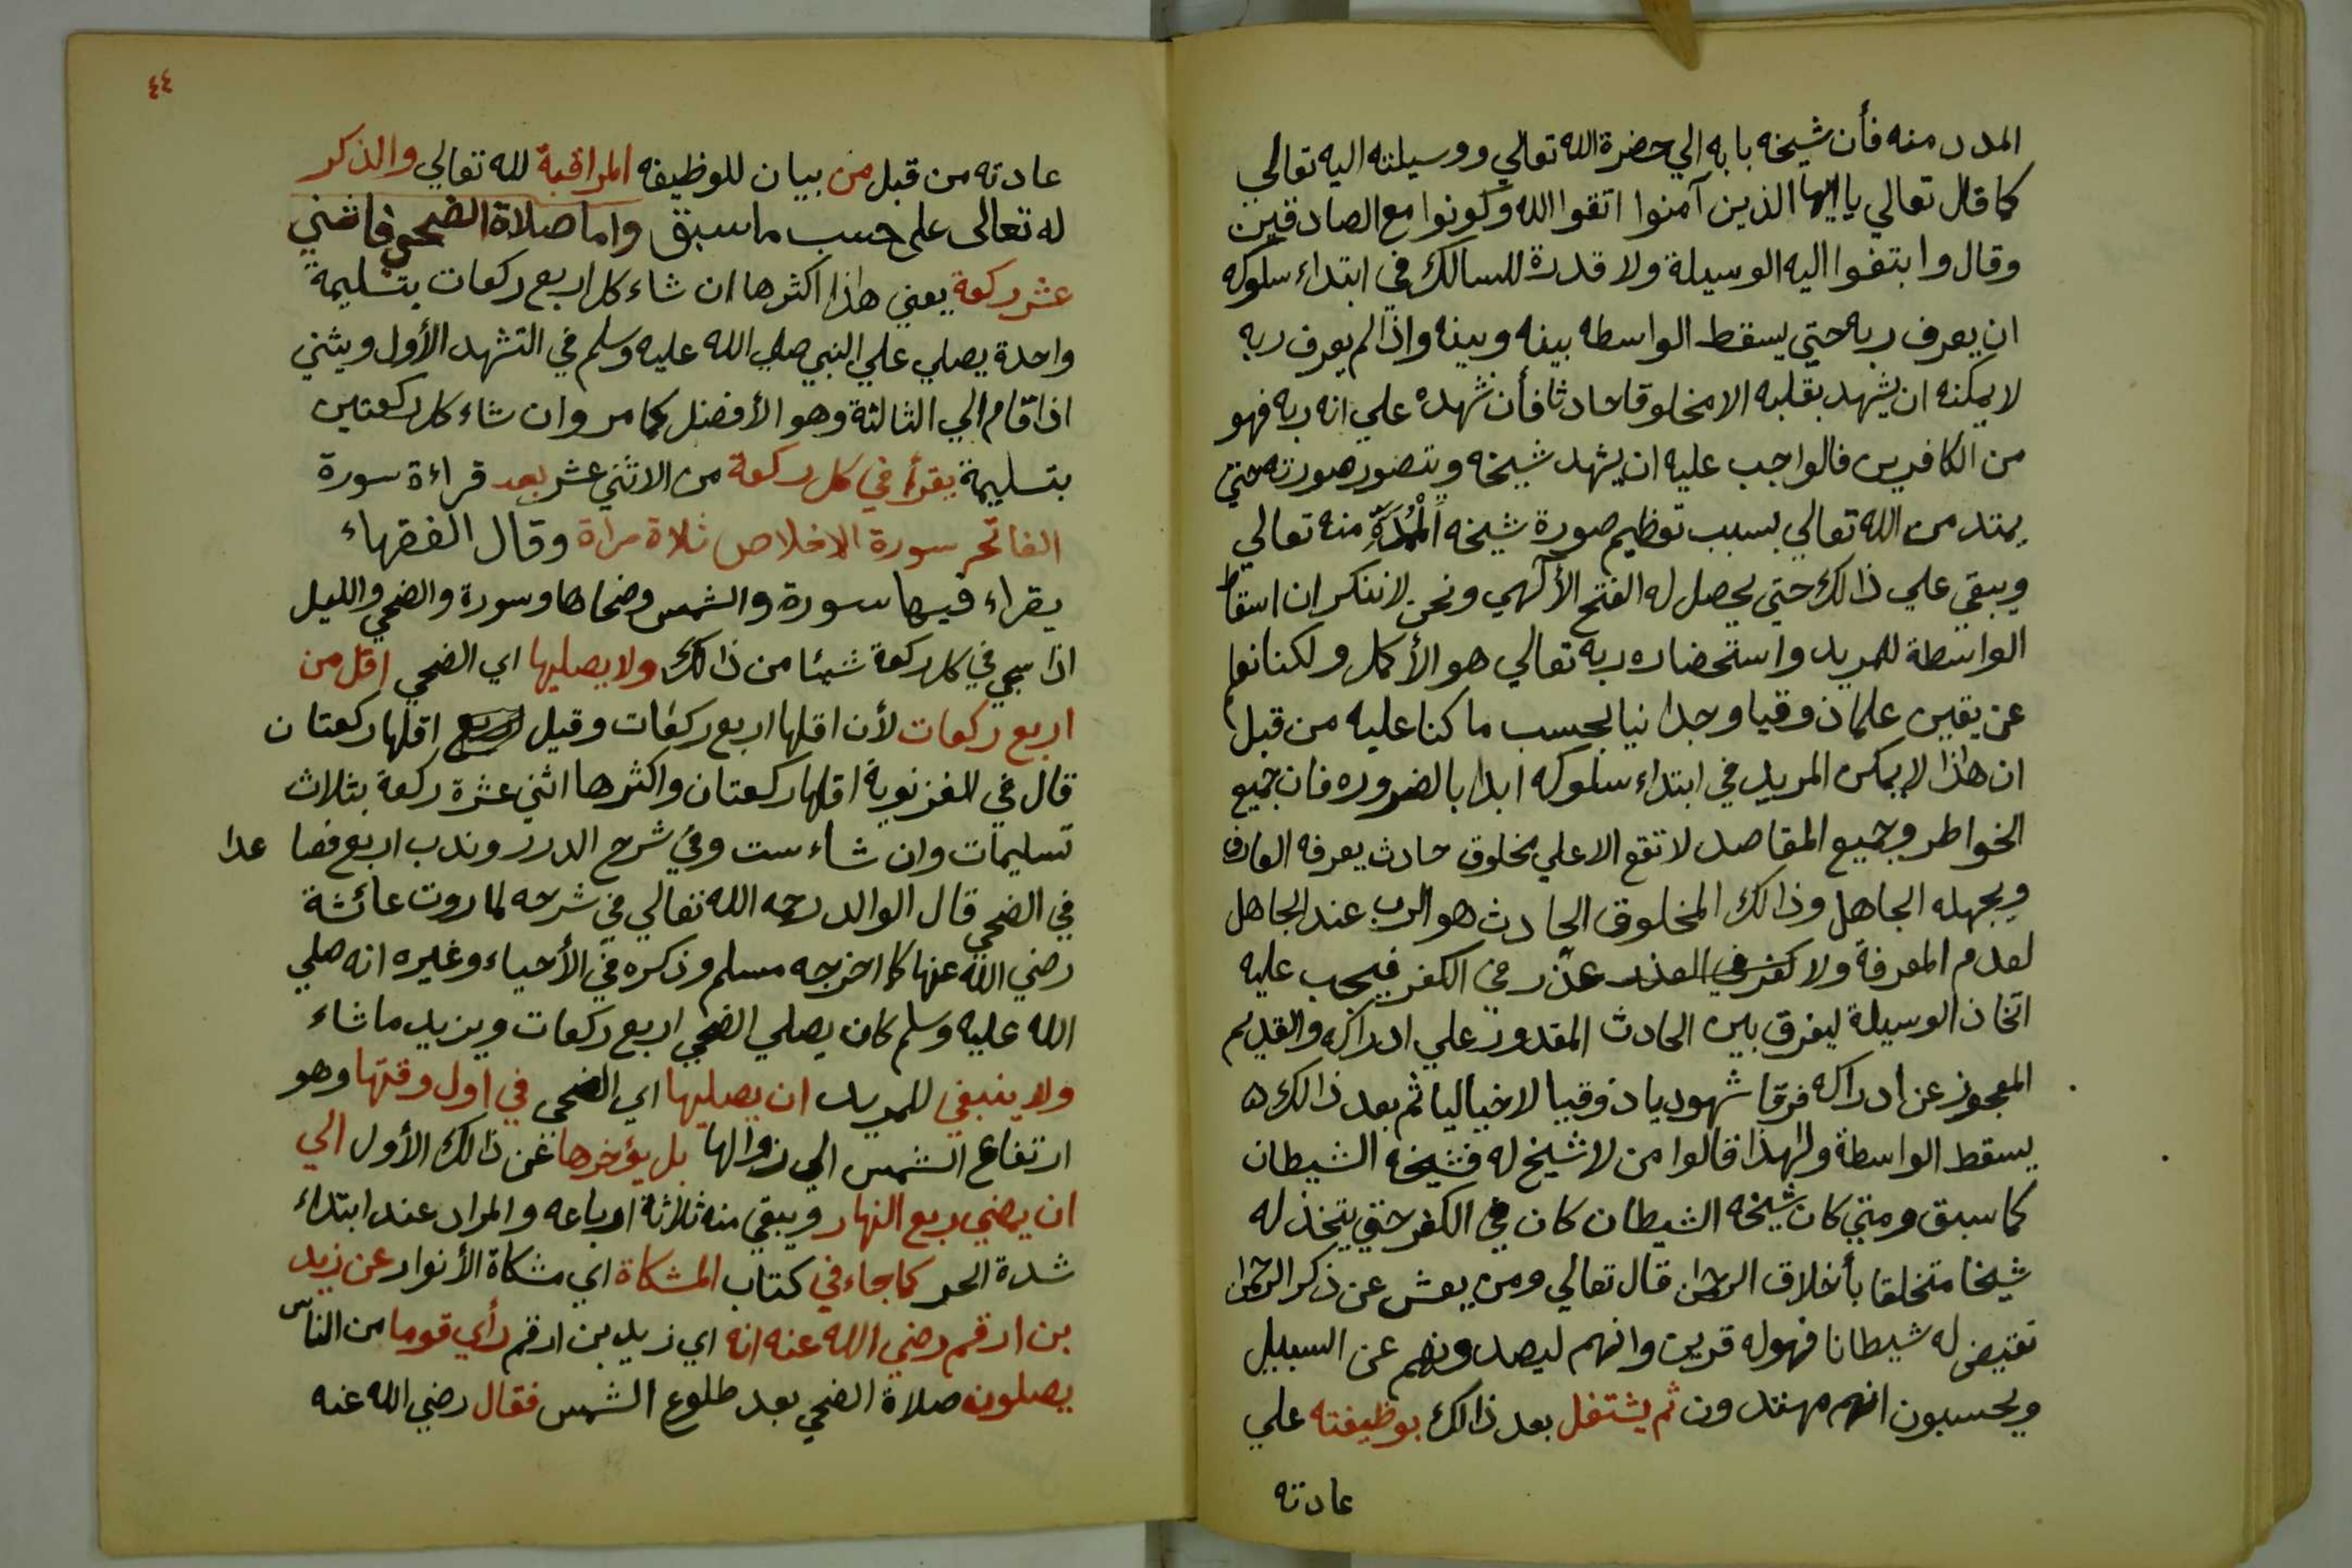 المدد منه فأن شيخه بابه الي حضرة الله تعالي ووسيلته اليه تعالي
كما قال تعالي يا ايها الذين آمنوا اتقوا الله وكونوا مع الصادقين
وقال وابتغوا اليه الوسيلة ولا قدرة للسالك في ابتداء سلوكه
ان يعرف ربه حتي يسقط الواسطه بينه وبينه واذا لم يعرف ربه
لا يمكنه ان يشهد بقلبه الا مخلوقا حادثا فأن شهده علي انه ربه فهو
من الكافرين فالواجب عليه ان يشهد شيخه ويتصور صورته حتي
يمتد من الله تعالي بسبب تعظيم صورة شيخه المُمَدَّةِ منه تعالي
ويبقي علي ذالك حتي يحصل له الفتح الألهي ونحن لا ننكر ان اسقاط
الواسطة للمريد واستحضاره ربه تعالي هو الأكمل ولكنا نعلم
عن يقين علما ذوقيا وجدانيا بحسب ما كنا عليه من قبل
ان هاذا لا يمكن المريد في ابتداء سلوكه ابدا بالضروره فان جميع
الخواطر وجميع المقاصد لا تقع الا علي مخلوق حادث يعرفه العارف
ويجهله الجاهل وذالك المخلوق الحادث هو الرب عند الجاهل
لعدم المعرفة ولا عذر في الكفر فيجب عليه
اتخاذ الوسيلة ليفرق بين الحادث المقدور علي ادراكه والقديم
المعجوز عن ادراكه فرقا شهوديا ذوقيا لا خياليا ثم بعد ذالك ه
يسقط الواسطة ولهذا قالوا من لا شيخ له فشيخه الشيطان
كما سبق ومتي كان شيخه الشيطان كان في الكفر حتي يتخذ له
شيخا متخلقا بأخلاق الرحمن قال تعالي ومن يعش عن ذكر الرحمن
نقيض له شيطانا فهو له قرين وانهم ليصدونهم عن السبيل
ويحسبون انهم مهتدون ثم يشتغل بعد ذالك بوظيفته علي
عادته
٤٤
عادته من قبل من بيان للوظيفه المراقبة لله تعالي والذكر
له تعالى على حسب ما سبق واما صلاة الضحي فاثني
عشر ركعة يعني هاذا اكثرها ان شاء كل اربع ركعات بتسليمة
واحدة يصلي علي النبي صلي الله عليه وسلم في التشهد الأول ويثني
اذا قام الي الثالثة وهو الأفضل كما مر وان شاء كل ركعتين
بتسليمة يقرأ في كل ركعة من الاثني عشر بعد قراءة سورة
الفاتحه سورة الاخلاص ثلاة مراة وقال الفقهاء
يقراء فيها سورة والشمس وضحاها وسورة والضحي والليل
اذا سجي في كل ركعة شيئا من ذالك ولا يصليها اي الضحي اقل من
اربع ركعات لأن اقلها اربع ركعات وقيل اقلها ركعتان
قال في الغزنوية اقلها ركعتان واكثرها اثني عشرة ركعة بثلاث
تسليمات وان شاء ست وفي شرح الدرر وندب اربع فصا عدا
في الضحي قال الوالد رحمه الله تعالي في شرحه لما روت عائشة
رضي الله عنها كما اخرجه مسلم وذكره في الأحياء وغيره انه صلي
الله عليه وسلم كان يصلي الضحي اربع ركعات ويزيد ما شاء
ولا ينبغي للمريد ان يصليها اي الضحي في اول وقتها وهو
ارتفاع الشمس الي زوالها بل يؤخرها عن ذالك الأول الي
ان يمضي ربع النهار ويبقي منه ثلاثة ارباعه والمراد عند ابتداء
شدة الحر كما جاء في كتاب المشكاة اي مشكاة الأنوار عن زيد
بن ارقم رضي الله عنه انه اي زيد بن ارقم رأي قوما من الناس
يصلون صلاة الضحي بعد طلوع الشمس فقال رضي الله عنه